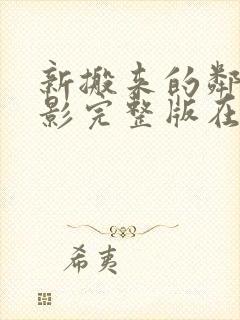 新搬来的鄰
影完整版在
希夷